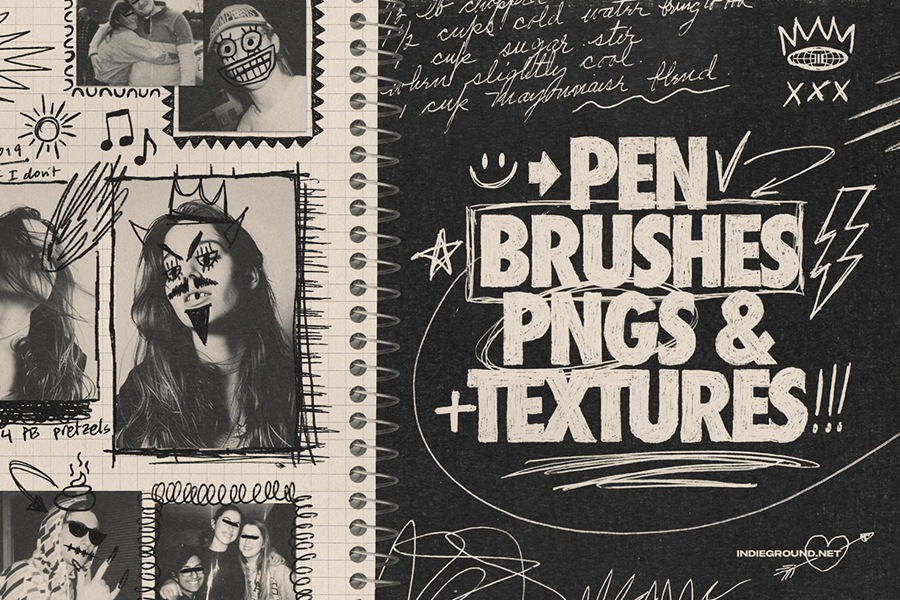 ½ lb chopped
½ cups cold water bring to a
1 cup sugar. stir
when slightly cool.
1 cup mayonnaise blend
XXX
2019
I don't
PEN
BRUSHES
PNGS &
+TEXTURES!!!
4 PB pretzels
INDIEGROUND.NET